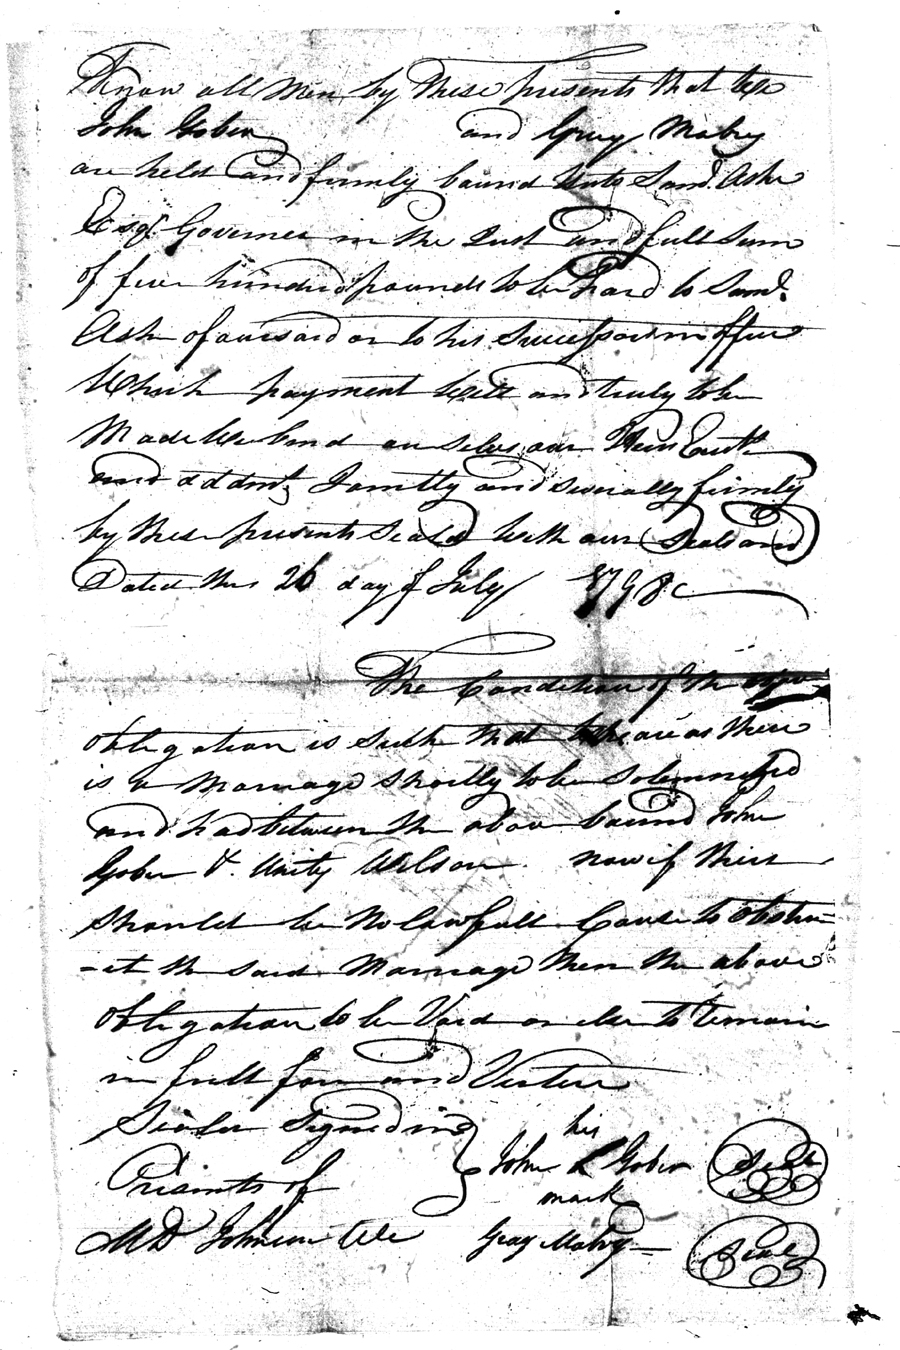 Know all Men by these presents that We
John Gober and Gray Mabry
are held and firmly bound unto Saml. Ashe
Esqr. Governer in the Just and full sum
of five hundred pounds to be paid to Saml.
Ashe aforesaid or to his Successors in office
Which payment well and truly to be
Made We bind our selves our Heirs Exutr
and addmt. Jointly and severally firmly
by these presents Seald with our Seals and
Dated this 26 day of July 1798
The Condition of the above
obligation is Such that whareas there
is a Marriage shortly to be Solemnized
and had between the above bound John
Gober & Unity Wilson now if there
should be No lawfull Cause to obstru
-ct the said Marriage then the above
obligation to be Void or else to remain
in full force and Virtue
Sealed Signed in
Presents of
his
John Gober Seal
mark
MD Johnson Gray Mabry Seal